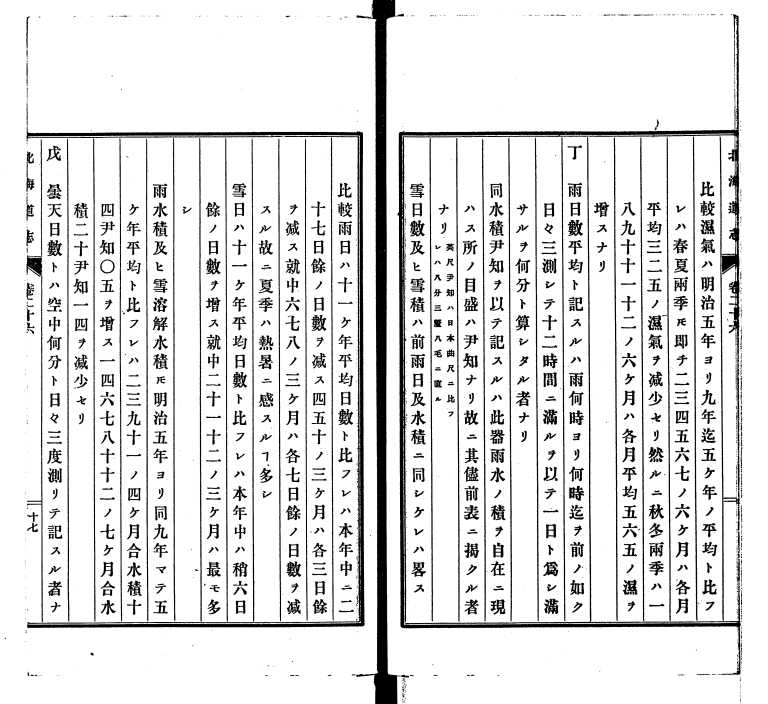 北海道志 卷二十六
比較濕氣ハ明治五年ヨリ九年迄五ケ年ノ平均ト比フ
レハ春夏兩季モ即チ二三四五六七ノ六ケ月ハ各月
平均三二五ノ濕氣ヲ減少セリ然ルニ秋冬兩季ハ一
八九十十一十二ノ六ケ月ハ各月平均五六五ノ濕ヲ
增スナリ
丁 雨日數平均ト記スルハ雨何時ヨリ何時迄ヲ前ノ如ク
日々三測シテ十二時間ニ滿ルヲ以テ一日ト爲シ滿
サルヲ何分ト算シタル者ナリ
同水積尹知ヲ以テ記スルハ此器雨水ノ積ヲ自在ニ現
ハス所ノ目盛ハ尹知ナリ故ニ其儘前表ニ揭クル者
ナリ
英尺尹知ハ日本曲尺ニ比フ
レハ八分三釐八毛ニ當ル
雪日數及ヒ雪積ハ前雨日及水積ニ同シケレハ畧ス
比較雨日ハ十一ケ年平均日數ト比フレハ本年中ニ二
十七日餘ノ日數ヲ減ス四五十ノ三ケ月ハ各三日餘
ヲ減ス就中六七八ノ三ケ月ハ各七日餘ノ日數ヲ減
スル故ニ夏季ハ熱暑ニ感スルヿ多シ
雪日ハ十一ケ年平均日數ト比フレハ本年中ハ稍六日
餘ノ日數ヲ增ス就中二十一十二ノ三ケ月ハ最モ多
シ
雨水積及ヒ雪溶解水積モ明治五年ヨリ同九年マテ五
ケ年平均ト比フレハ二三九十一ノ四ケ月合水積十
四尹知〇五ヲ增ス一四六七八十十二ノ七ケ月合水
積二十尹知一四ヲ減少セリ
戊 曇天日數トハ空中何分ト日々三度測リテ記スル者ナ
北海道志 卷二十六 十七